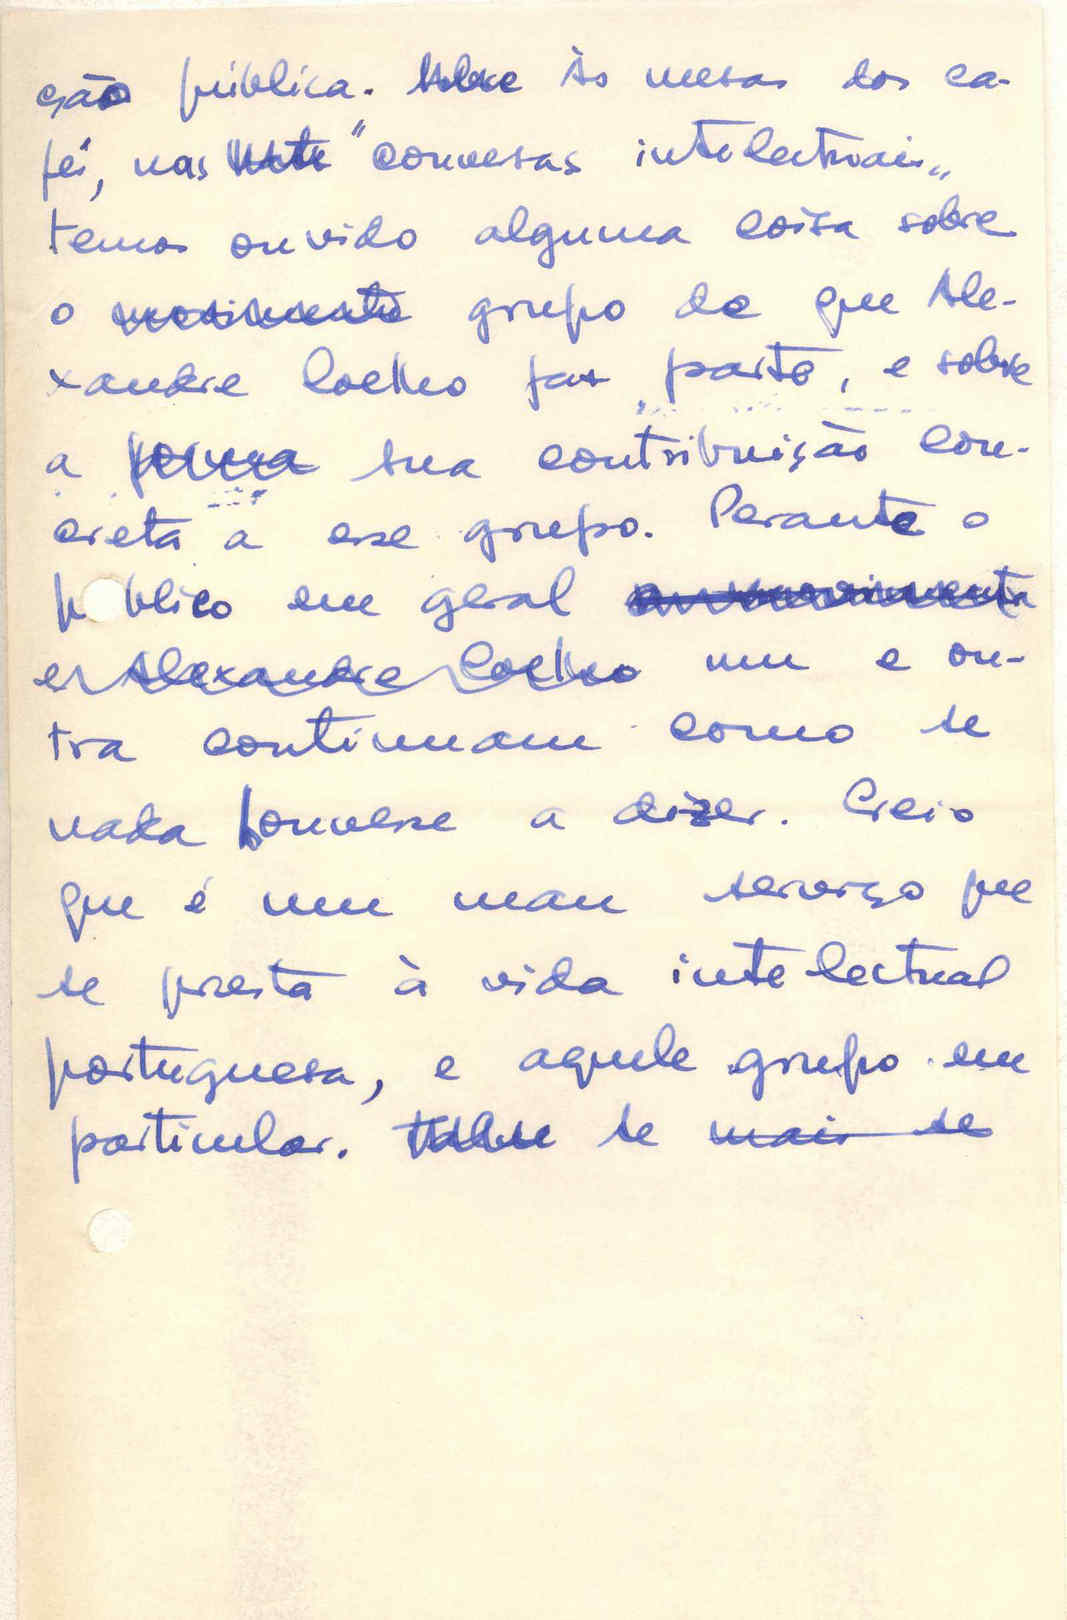 ção pública. Às mesas dos ca-
fés, nas "conversas intelectuais"
temos ouvido alguma coisa sobre
o movimento grupo de que Ale-
xandre Coelho faz parte, e sobre
a forma sua contribuição con-
creta a esse grupo. Perante o
p blico em geral
e Alexandre Coelho um e ou-
tra continuam como se
nada houvesse a dizer. Creio
que é um mau serviço que
se presta à vida intelectual
portuguesa, e aquele grupo em
particular. se mais se